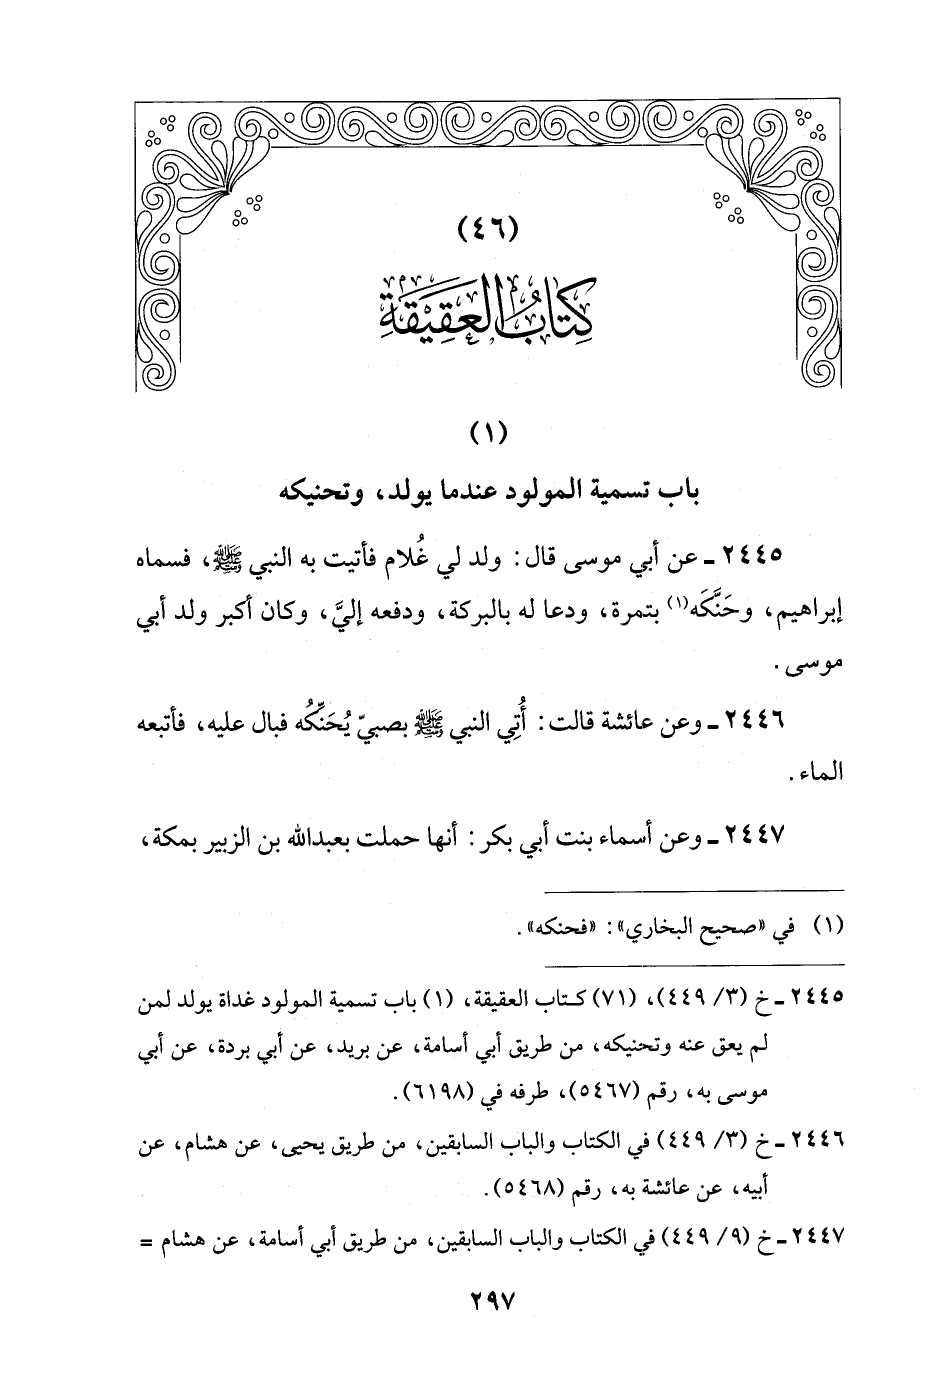 (٤٦)
كِتَابُ العَقِيقَةِ
(١)
باب تسمية المولود عندما يولد، وتحنيكه
٢٤٤٥ ـ عن أبي موسى قال: ولد لي غُلام فأتيت به النبي ﷺ، فسماه
إبراهيم، وحَنَّكَه(١) بتمرة، ودعا له بالبركة، ودفعه إليَّ، وكان أكبر ولد أبي
موسى.
٢٤٤٦ ـ وعن عائشة قالت: أُتِي النبي ﷺ بصبيّ يُحَنِّكُه فبال عليه، فأتبعه
الماء.
٢٤٤٧ ـ وعن أسماء بنت أبي بكر: أنها حملت بعبدالله بن الزبير بمكة،
(١) في «صحيح البخاري»: «فحنكه».
٢٤٤٥ ـ خ (٣/ ٤٤٩)، (٧١) كتاب العقيقة، (١) باب تسمية المولود غداة يولد لمن
لم يعق عنه وتحنيكه، من طريق أبي أسامة، عن بريد، عن أبي بردة، عن أبي
موسى به، رقم (٥٤٦٧)، طرفه في (٦١٩٨).
٢٤٤٦ ـ خ (٣/ ٤٤٩) في الكتاب والباب السابقين، من طريق يحيى، عن هشام، عن
أبيه، عن عائشة به، رقم (٥٤٦٨).
٢٤٤٧ ـ خ (٩/ ٤٤٩) في الكتاب والباب السابقين، من طريق أبي أسامة، عن هشام =
٢٩٧